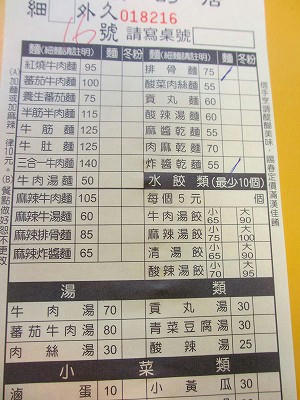 細 外久 018216
16 號 請寫桌號
麵(細麵請註明) 麵 冬粉 麵(細麵請註明) 麵 冬粉
紅燒牛肉麵 95 排骨麵 75
蕃茄牛肉麵 100 酸菜肉絲麵 55
養生蕃茄麵 75 貢丸麵 60
半筋半肉麵 115 酸辣湯麵 60
牛筋麵 125 麻醬乾麵 55
牛肚麵 125 肉麻乾麵 70
三合一牛肉麵 140 炸醬乾麵 55
牛肉湯麵 50 水餃類(最少10個)
麻辣牛肉麵 105 每個5元 個
麻辣牛湯麵 60 牛肉湯餃 小65 大90
麻辣排骨麵 85 麻辣湯餃 小75 大100
麻辣炸醬麵 65 清湯餃 小60 大85
酸辣湯餃 小70 大95
湯類
牛肉湯 70 貢丸湯 30
蕃茄牛肉湯 80 青菜豆腐湯 30
肉絲湯 30 酸辣湯 25
小菜類
滷蛋 10 小黃瓜 30
(A)加麵或加麻辣一律10元。(B)餐點做好恕不更改